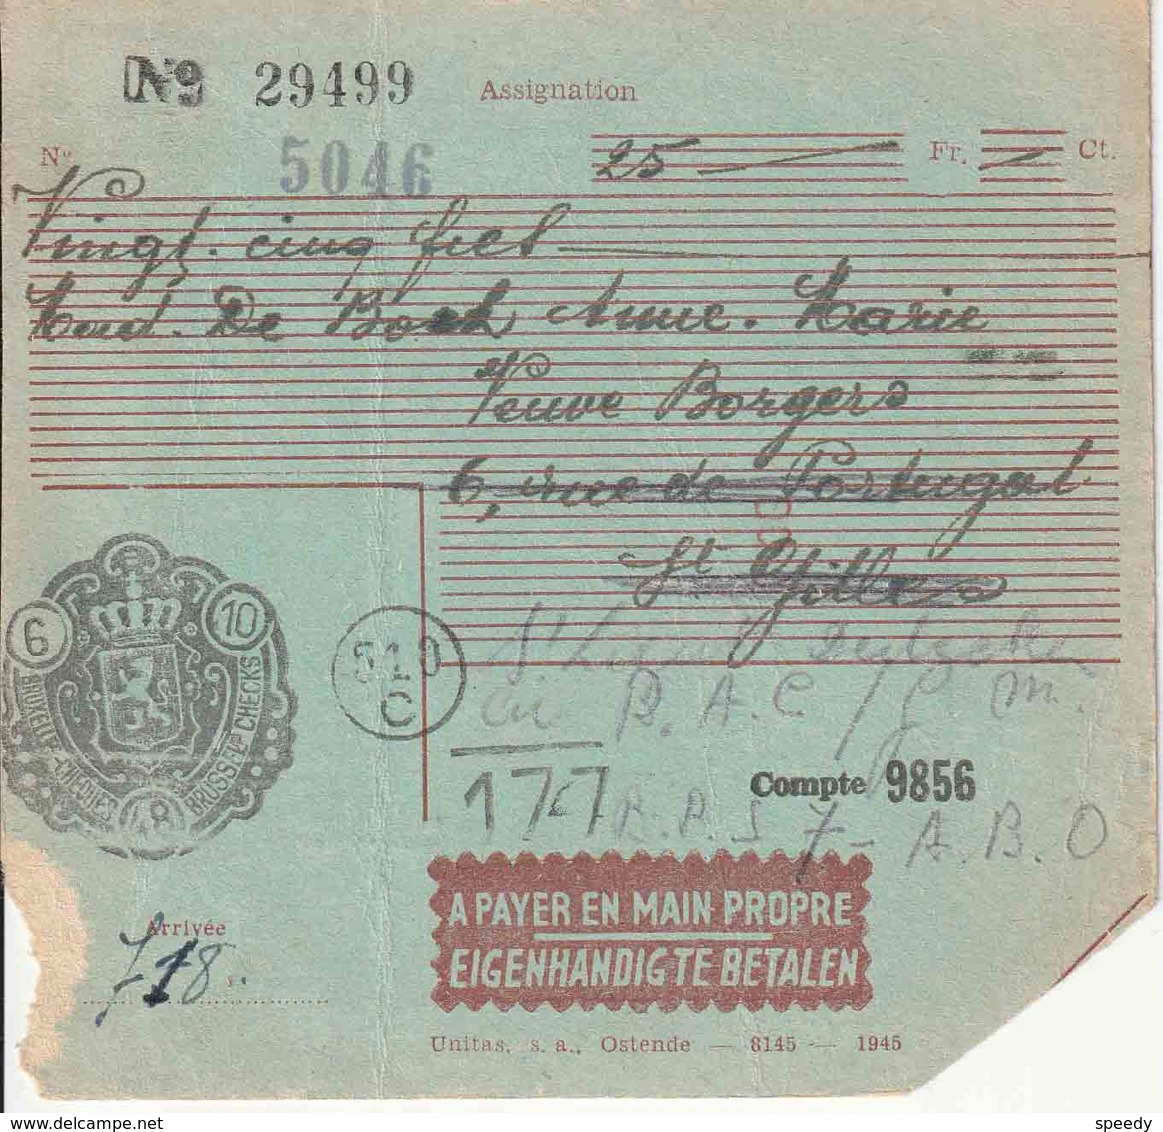 Nº 29499 Assignation
Nº 5046 25 — Fr. — Ct.
Vingt. cinq
De Bock Anne. Marie
Veuve Borgers
6, rue de Portugal
St Gilles
6 10
BRUXELLES-CHEQUES 48 BRUSSEL-CHECKS
510
C
P. A. C
177
Compte 9856
7 - A. B. O
A PAYER EN MAIN PROPRE
EIGENHANDIG TE BETALEN
Arrivée
718
Unitas, s. a., Ostende — 8145 — 1945
www.delcampe.net
speedy